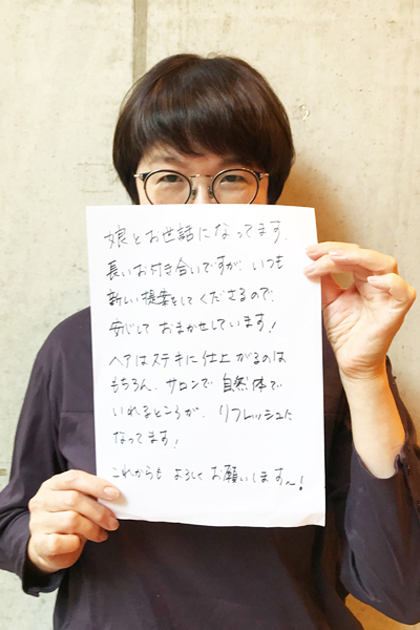 娘とお世話になってます。
長いお付き合いですが、いつも
新しい提案をしてくださるので、
安心して おまかせしています!
ヘアはステキに仕上がるのは
もちろん、サロンで自然体で
いれるところが、リフレッシュに
なってます!
これからも よろしくお願いします〜!